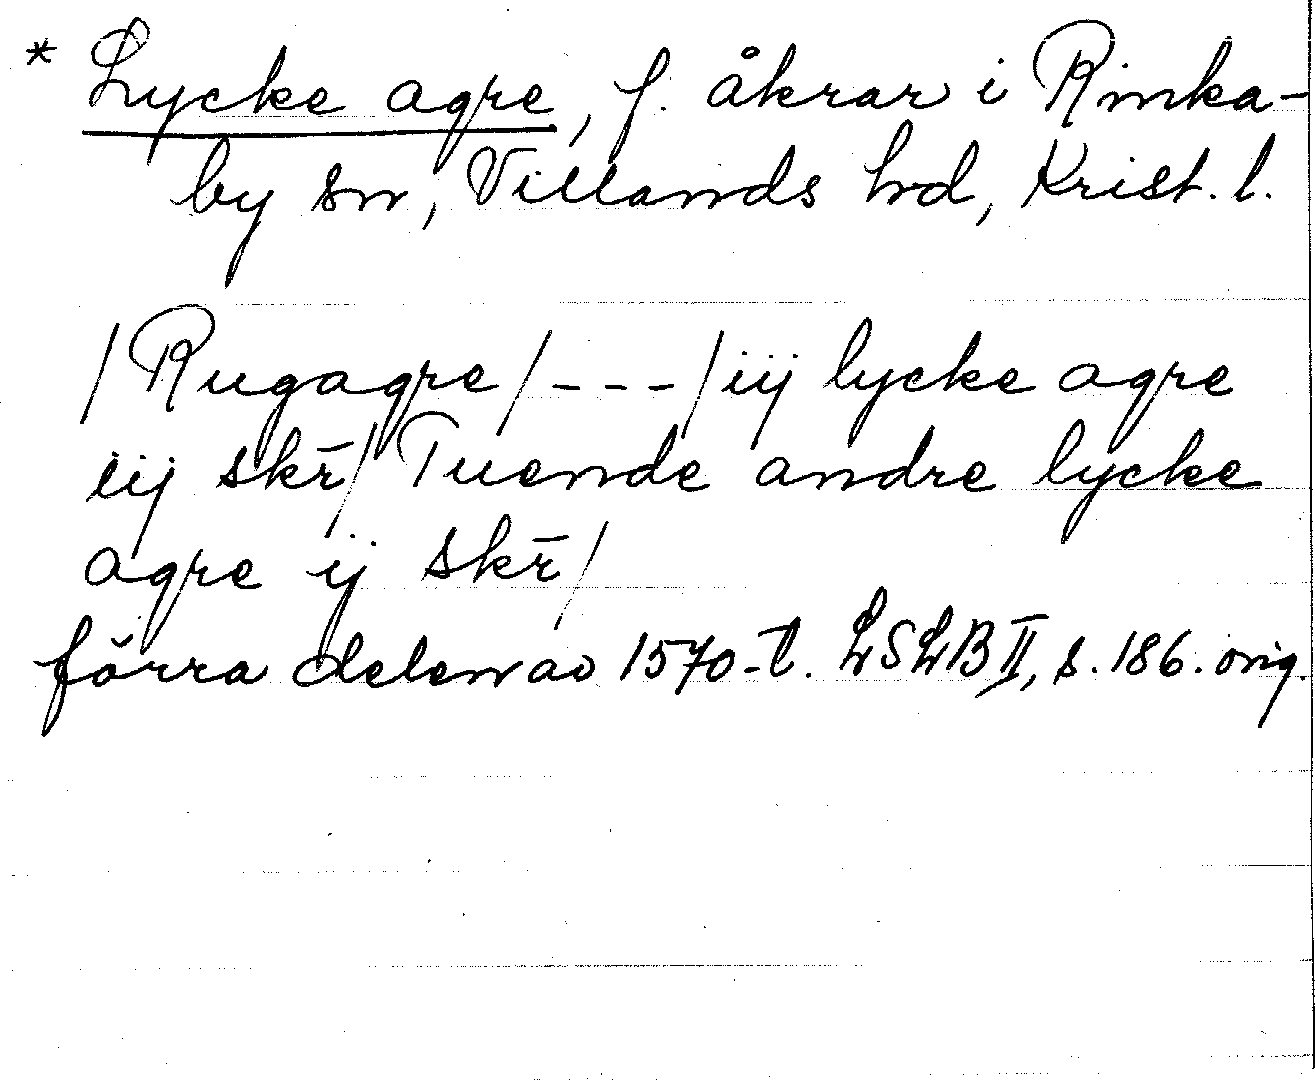 * Lycke agre, f. åkrar i Rinka-
by sn, Villands hd, Krist. l.
/Rugagre/---/iij lycke agre
iij skr̄/Tuende andre lycke
agre ij skr̄/
förra delen av 1570-t. LSLB II, s. 186. orig.